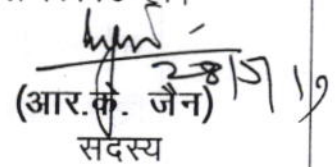 28/5/19
(आर.के. जैन)
सदस्य